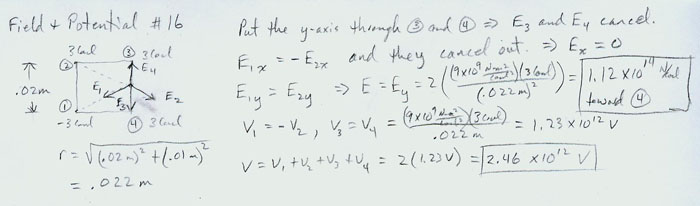 Field + Potential #16
3 Coul ② ③ 3 Coul
E4
.02m
E1 E3 E2
① -3 Coul ④ 3 Coul
r = √((.02m)² + (.01m)²)
= .022m
Put the y-axis through ③ and ④ ⇒ E3 and E4 cancel.
E1x = -E2x and they cancel out. ⇒ Ex = 0
E1y = E2y ⇒ E = Ey = 2 ( (9x10⁹ N·m²/Coul²)(3 Coul) / (.022m)² ) = 1.12 x10¹⁴ N/Coul toward ④
V1 = -V2, V3 = V4 = (9x10⁹ N·m²/Coul²)(3 Coul) / .022m = 1.23 x10¹² V
V = V1 + V2 + V3 + V4 = 2(1.23V) = 2.46 x10¹² V